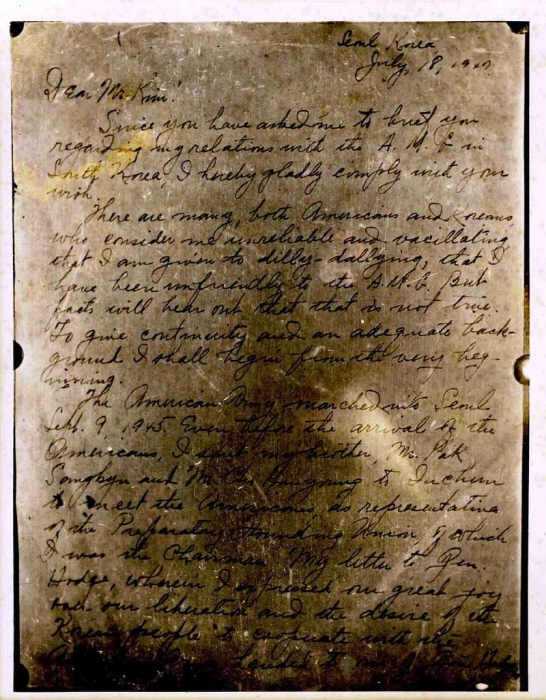 Seoul, Korea
July, 18, 1947
Dear Mr. Kim!
Since you have asked me to brief you
regarding my relations with the A. M. G in
South Korea, I hereby gladly comply with your
wish.
There are many, both Americans and Koreans
who consider me unreliable and vacillating,
that I am given to dilly-dallying, that I
have been unfriendly to the A.M.G. But
facts will bear out that that is not true.
To give continuity and an adequate back-
ground I shall begin from the very beg-
inning.
The American Army marched into Seoul
Sept. 9, 1945. Even before the arrival of the
Americans, I sent my brother, Mr. Pak
and Mr. to Inchun
to meet the Americans as representative
of the Preparatory Union, of which
I was the Chairman. My letter to Gen.
Hodge, wherein I expressed our great joy
our liberation and the desire of the
Korean people to cooperate with the
handed to one of